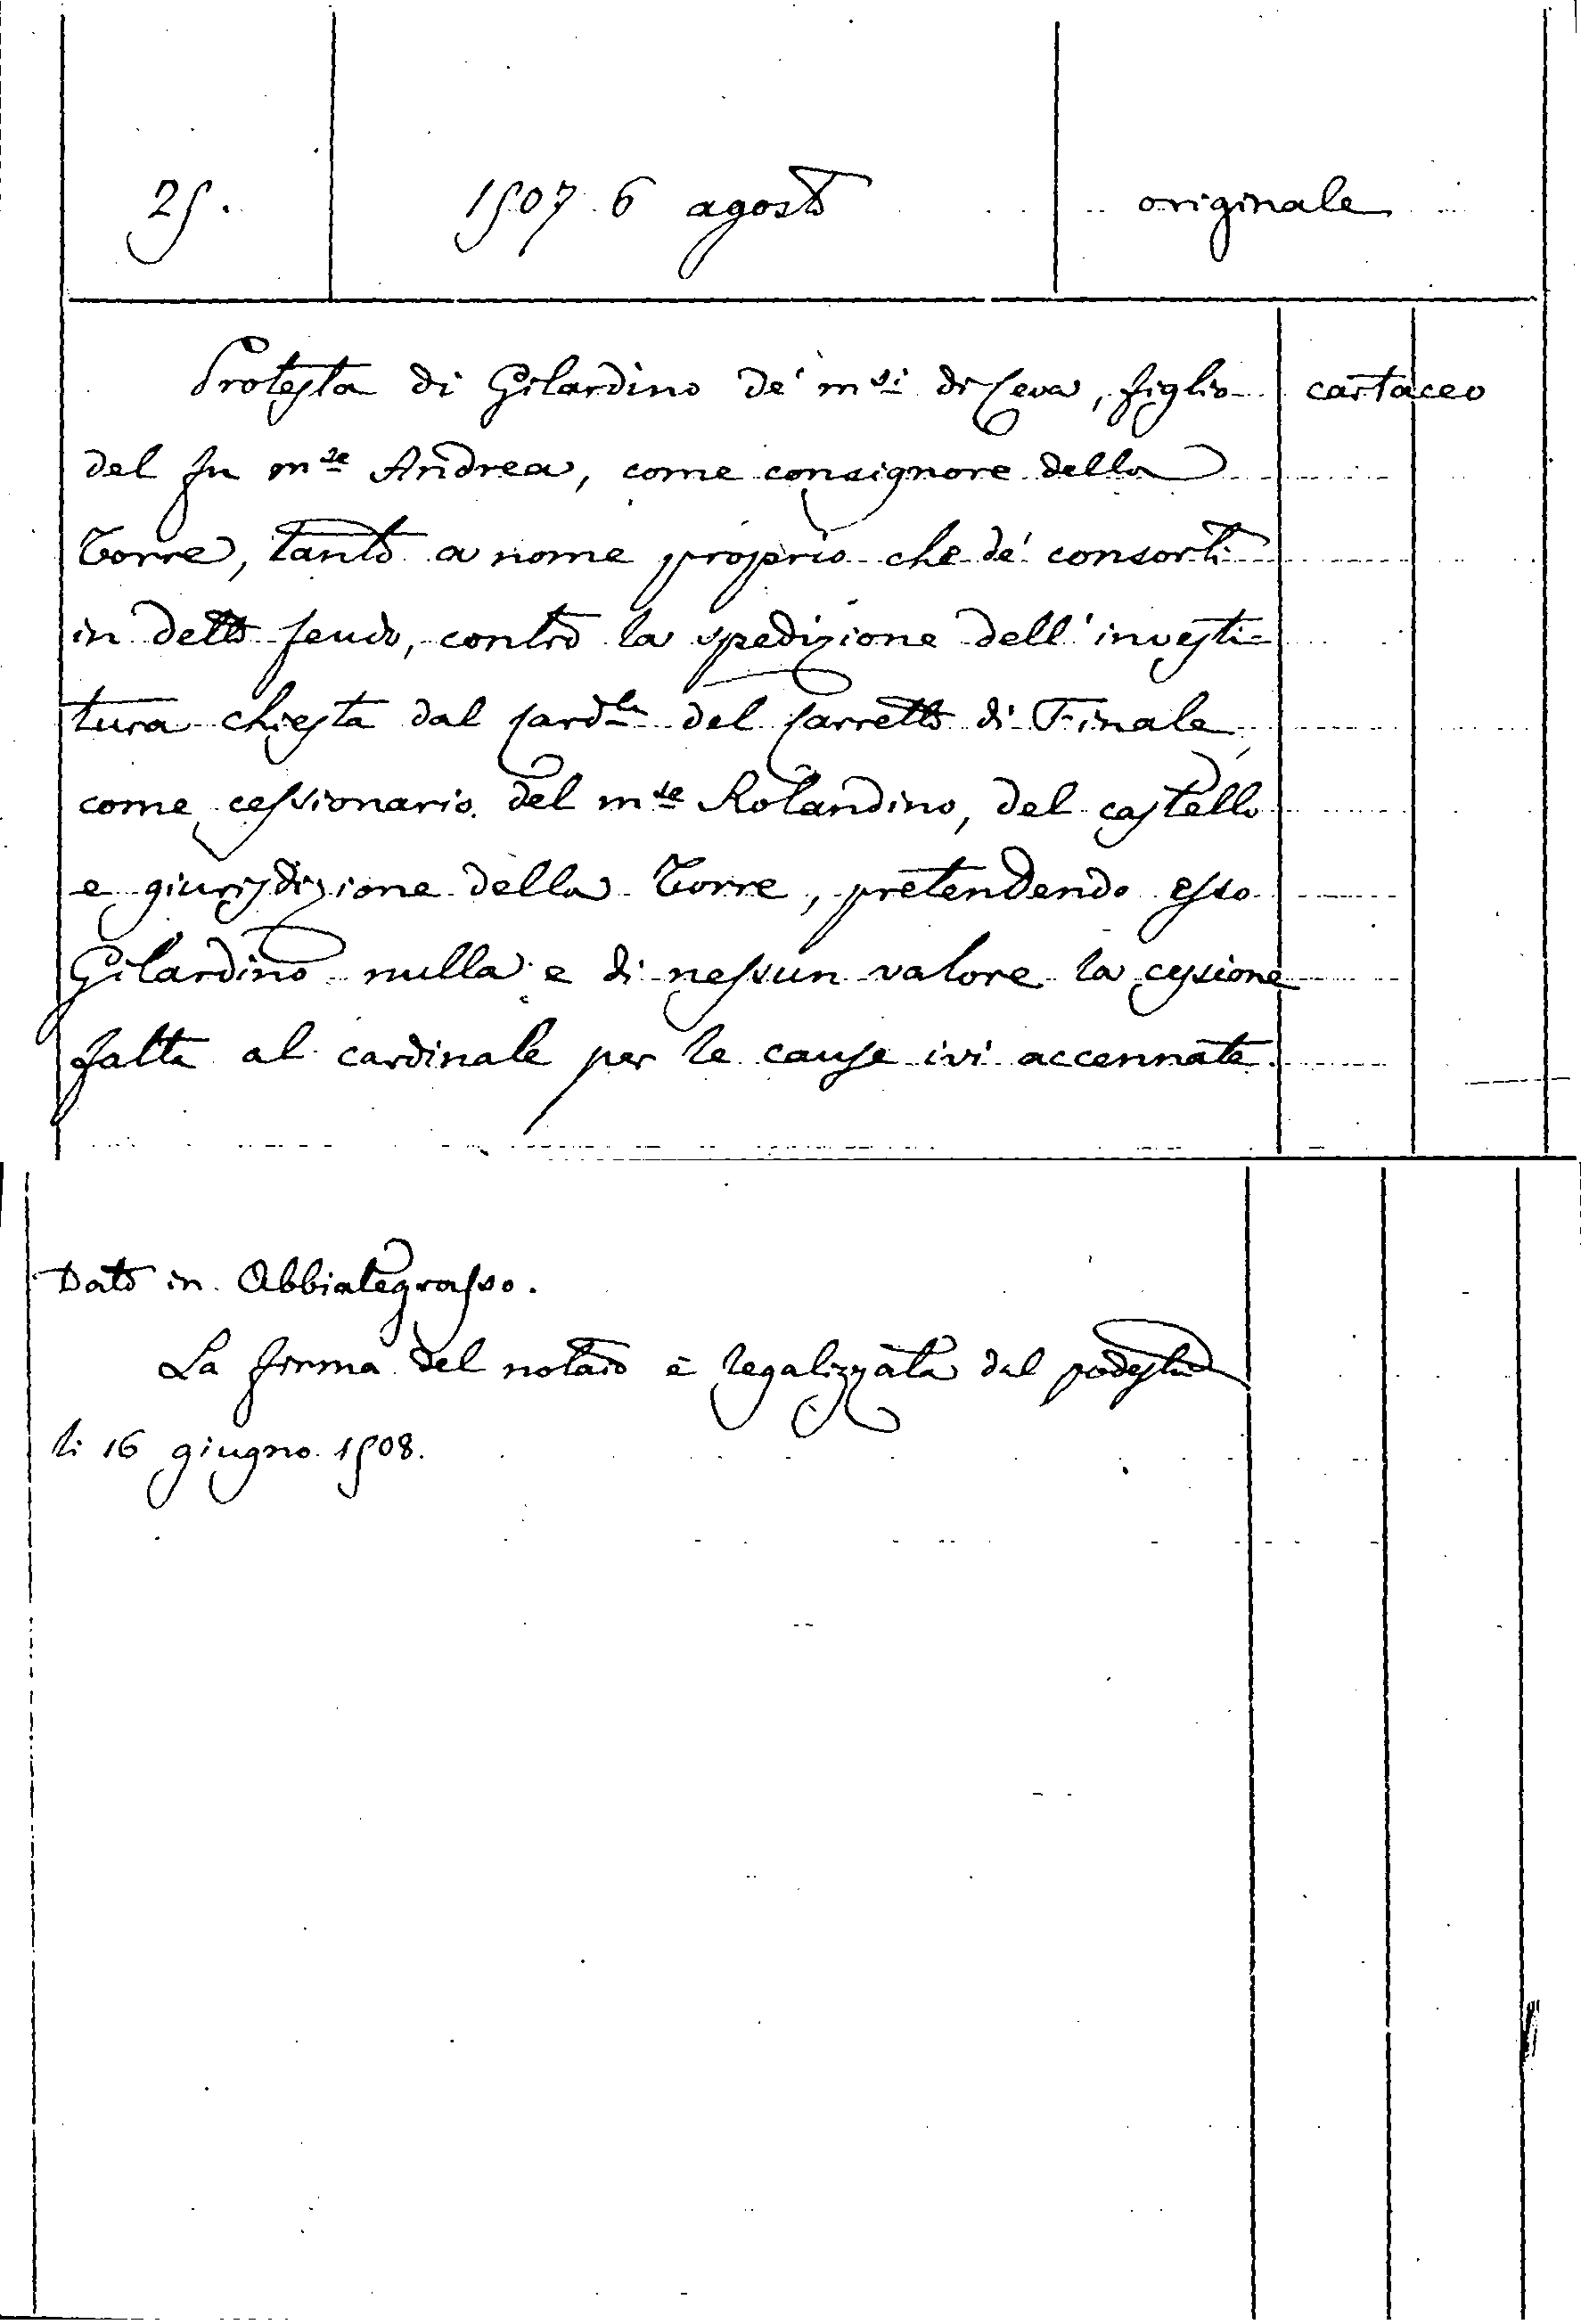 25. 1507 6 agosto originale
Protesta di Gilardino de' m.si di Ceva, figlio cartaceo
del fu m.se Andrea, come consignore della
Torre, tanto a nome proprio che de' consorti
in detto feudo, contro la spedizione dell'investi-
tura chiesta dal Card.le del Carretto di Finale,
come cessionario del m.se Rolandino, del castello
e giurisdizione della Torre, pretendendo esso
Gilardino nulla e di nessun valore la cessione
fatta al cardinale per le cause ivi accennate.
Dato in Abbiategrasso.
La firma del notaio è legalizzata dal podestà
li 16 giugno 1508.